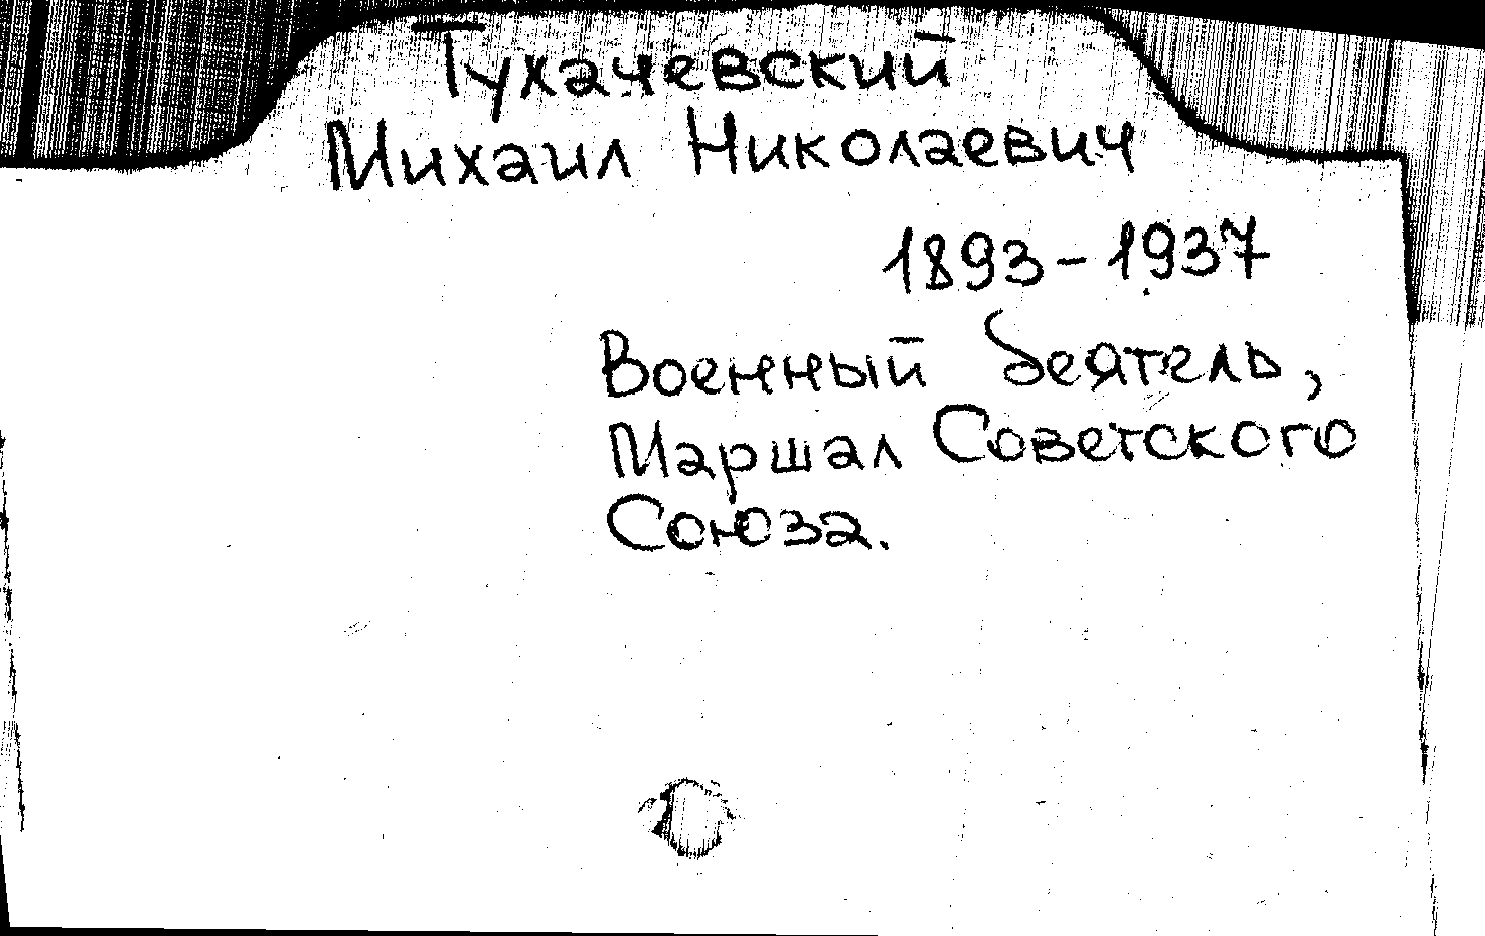 Тухачевский
Михаил Николаевич
1893-1937
Военный деятель,
Маршал Советского
Союза.